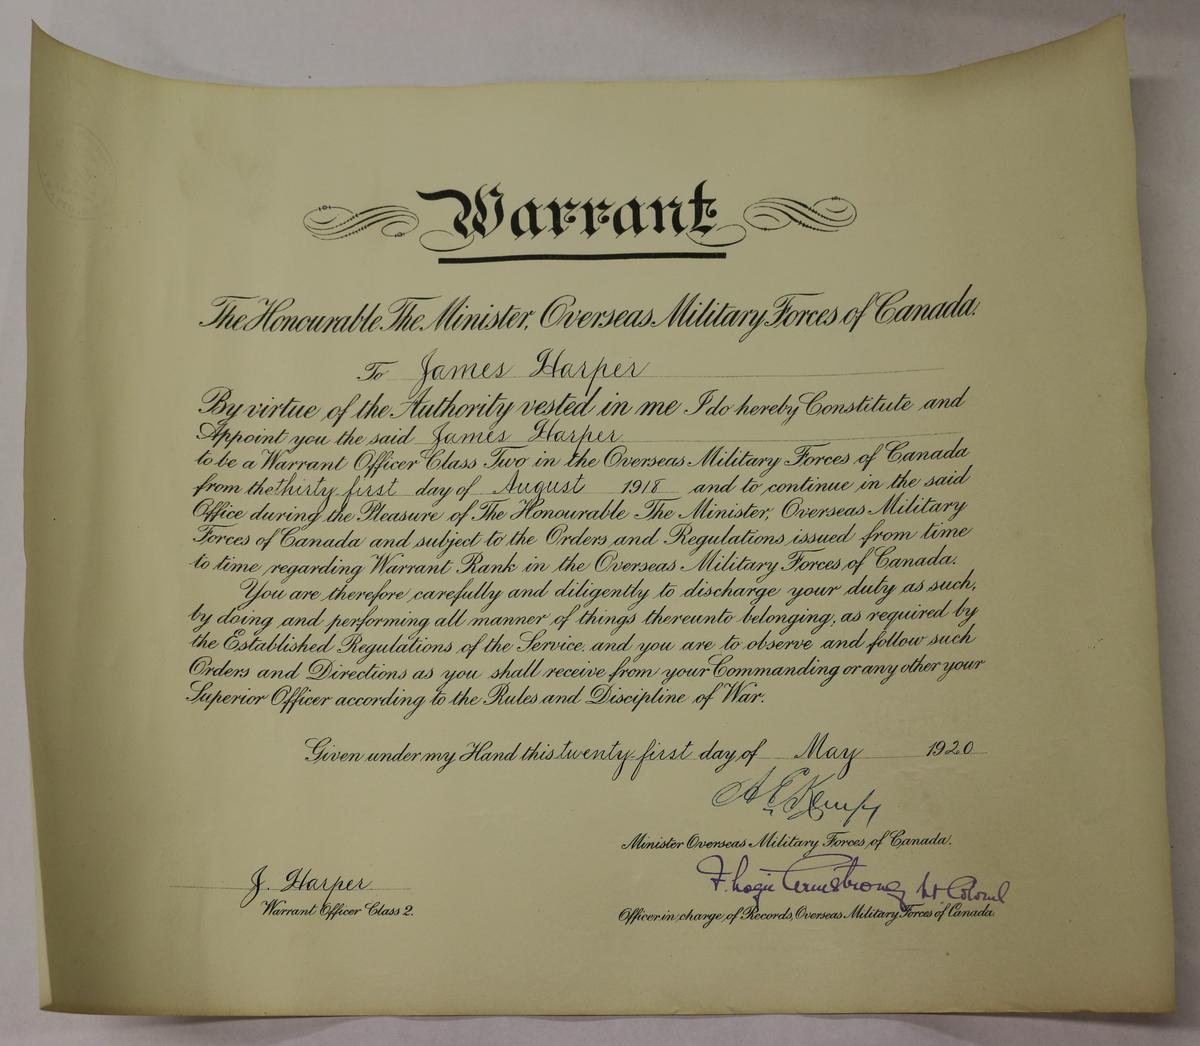 Warrant
The Honourable The Minister, Overseas Military Forces of Canada.
To James Harper
By virtue of the Authority vested in me I do hereby Constitute and
Appoint you the said James Harper
to be a Warrant Officer Class Two in the Overseas Military Forces of Canada
from the thirty first day of August 1918 and to continue in the said
Office during the Pleasure of The Honourable The Minister, Overseas Military
Forces of Canada and subject to the Orders and Regulations issued from time
to time regarding Warrant Rank in the Overseas Military Forces of Canada.
You are therefore carefully and diligently to discharge your duty as such,
by doing and performing all manner of things thereunto belonging, as required by
the Established Regulations of the Service. and you are to observe and follow such
Orders and Directions as you shall receive from your Commanding or any other your
Superior Officer according to the Rules and Discipline of War.
Given under my Hand this twenty-first day of May 1920
A E Kemp
Minister Overseas Military Forces of Canada.
F. Logie Armstrong Lt Colonel
J. Harper
Warrant Officer Class 2.
Officer in charge of Records, Overseas Military Forces of Canada.